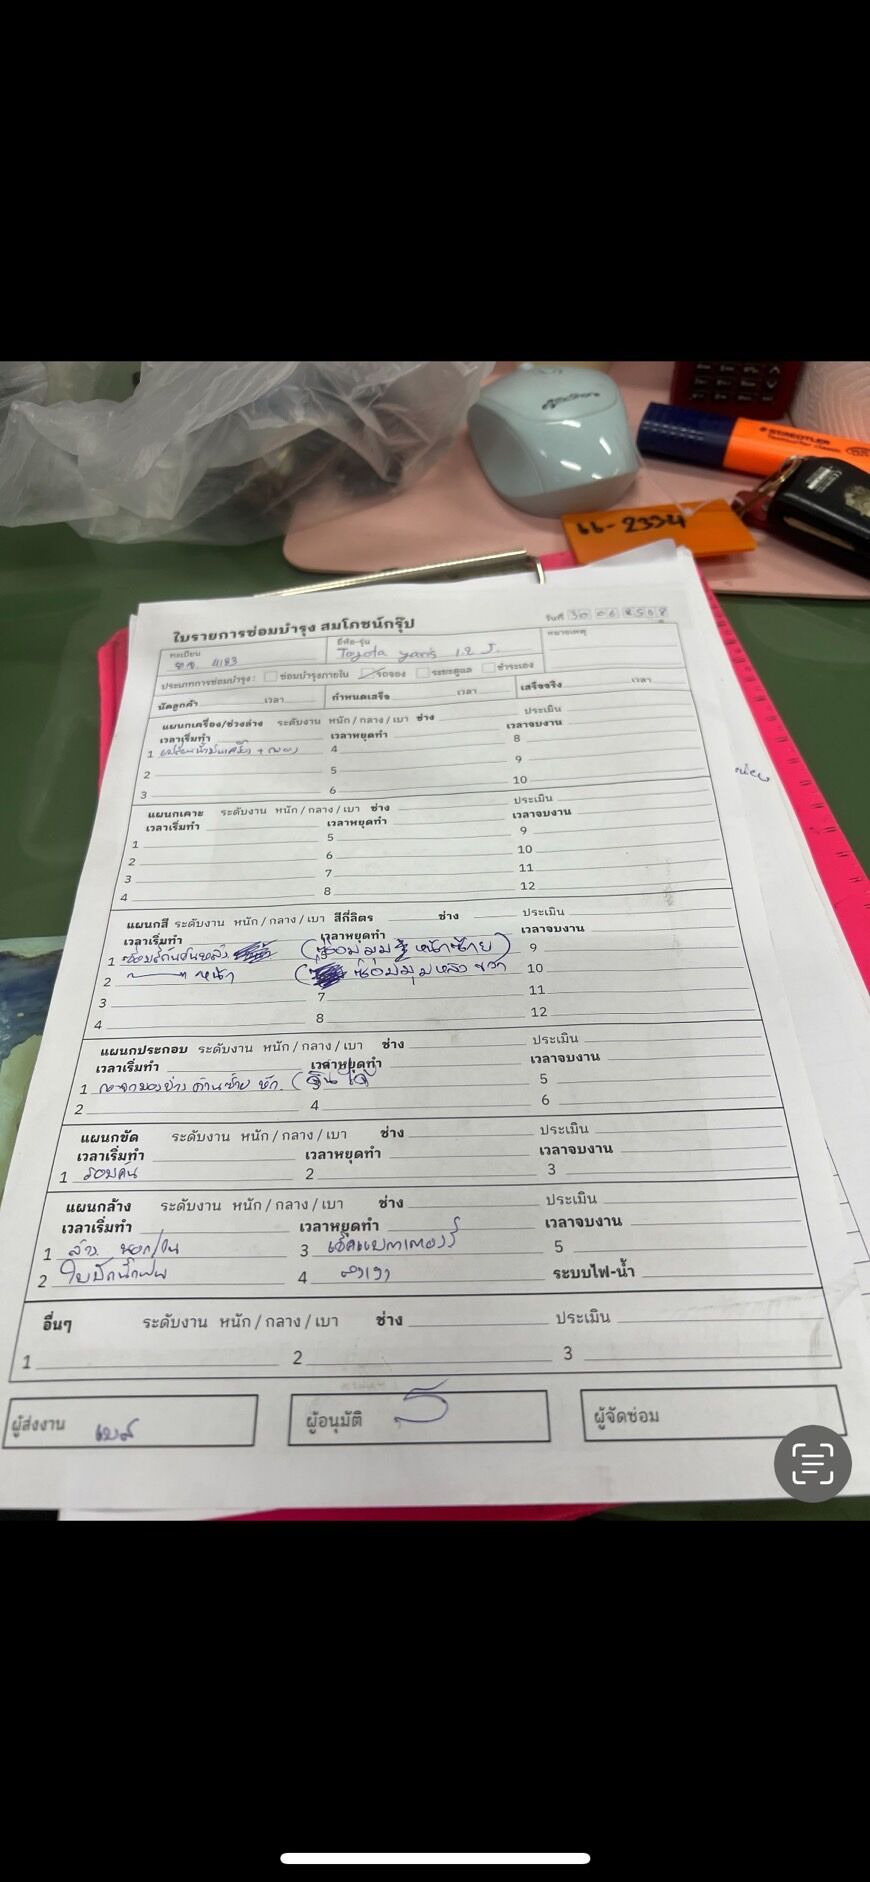 STAEDTLER
textsurfer classic
66-2334
ใบรายการซ่อมบำรุง สมโภชน์กรุ๊ป
วันที่ 30 06 2568
ทะเบียน ยี่ห้อ-รุ่น หมายเหตุ
4183 Toyota yaris 1.2 J.
ประเภทการซ่อมบำรุง: ซ่อมบำรุงภายใน รถจอง ระยะดูแล ชำระเอง
นัดลูกค้า เวลา กำหนดเสร็จ เวลา เสร็จจริง เวลา
แผนกเครื่อง/ช่วงล่าง ระดับงาน หนัก / กลาง / เบา ช่าง ประเมิน
เวลาเริ่มทำ เวลาหยุดทำ เวลาจบงาน
1 เปลี่ยนน้ำมันเครื่อง + กรอง 4 8
2 5 9
3 6 10
แผนกเคาะ ระดับงาน หนัก / กลาง / เบา ช่าง ประเมิน
เวลาเริ่มทำ เวลาหยุดทำ เวลาจบงาน
1 5 9
2 6 10
3 7 11
4 8 12
แผนกสี ระดับงาน หนัก / กลาง / เบา สีกี่ลิตร ช่าง ประเมิน
เวลาเริ่มทำ เวลาหยุดทำ เวลาจบงาน
1 ซ่อมสีกันชนหลัง (ซ่อมมุม หน้าซ้าย) 9
2 หน้า (ซ่อมมุมหลังขวา 10
3 7 11
4 8 12
แผนกประกอบ ระดับงาน หนัก / กลาง / เบา ช่าง ประเมิน
เวลาเริ่มทำ เวลาหยุดทำ เวลาจบงาน
1 กระจกมองข้าง ด้านซ้าย หัก 5
2 4 6
แผนกขัด ระดับงาน หนัก / กลาง / เบา ช่าง ประเมิน
เวลาเริ่มทำ เวลาหยุดทำ เวลาจบงาน
1 รอบคัน 2 3
แผนกล้าง ระดับงาน หนัก / กลาง / เบา ช่าง ประเมิน
เวลาเริ่มทำ เวลาหยุดทำ เวลาจบงาน
1 ล้าง นอก/ใน 3 เช็คแบตเตอรี่ 5
2 ใบปัดน้ำฝน 4 ระบบไฟ-น้ำ
อื่นๆ ระดับงาน หนัก / กลาง / เบา ช่าง ประเมิน
1 2 3
ผู้ส่งงาน เบส ผู้อนุมัติ ผู้จัดซ่อม